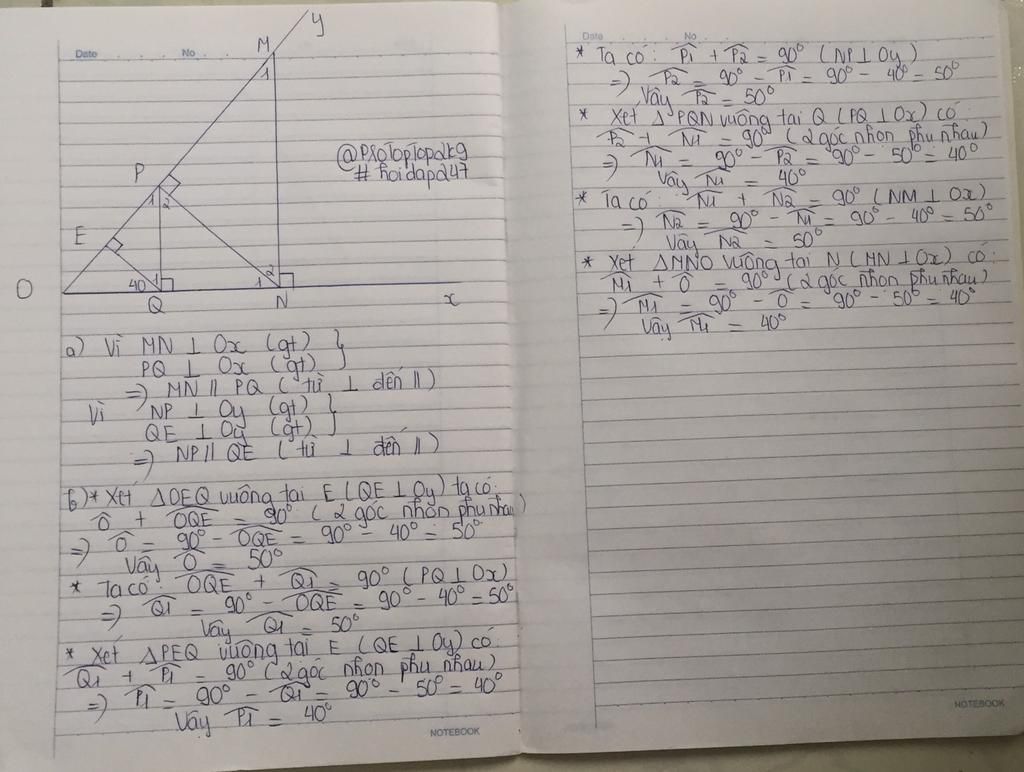 Date No
y
M
1
P
1 2
@Pxotoptop2k9
# hoidap247
E
O
40 1
Q
1 2
N
x
a) Vì MN ⊥ Ox (gt) }
PQ ⊥ Ox (gt)
=) MN // PQ ( từ ⊥ đến //)
Vì NP ⊥ Oy (gt) }
QE ⊥ Oy (gt)
=) NP // QE ( từ ⊥ đến //)
b) * Xét ΔOEQ vuông tại E ( QE ⊥ Oy) ta có:
Ô + OQE = 90° ( 2 góc nhọn phụ nhau)
=) Ô = 90° - OQE = 90° - 40° = 50°
Vậy Ô = 50°
* Ta có: OQE + Q1 = 90° ( PQ ⊥ Ox)
=) Q1 = 90° - OQE = 90° - 40° = 50°
Vậy Q1 = 50°
* Xét ΔPEQ vuông tại E ( QE ⊥ Oy) có:
Q1 + P1 = 90° ( 2 góc nhọn phụ nhau)
=) P1 = 90° - Q1 = 90° - 50° = 40°
Vậy P1 = 40°
NOTEBOOK
Date No
* Ta có: P1 + P2 = 90° ( NP ⊥ Oy)
=) P2 = 90° - P1 = 90° - 40° = 50°
Vậy P2 = 50°
* Xét ΔPQN vuông tại Q ( PQ ⊥ Ox) có:
P2 + N1 = 90° ( 2 góc nhọn phụ nhau)
=) N1 = 90° - P2 = 90° - 50° = 40°
Vậy N1 = 40°
* Ta có: N1 + N2 = 90° ( NM ⊥ Ox)
=) N2 = 90° - N1 = 90° - 40° = 50°
Vậy N2 = 50°
* Xét ΔMNO vuông tại N ( MN ⊥ Ox) có:
M1 + Ô = 90° ( 2 góc nhọn phụ nhau)
=) M1 = 90° - Ô = 90° - 50° = 40°
Vậy M1 = 40°
NOTEBOOK